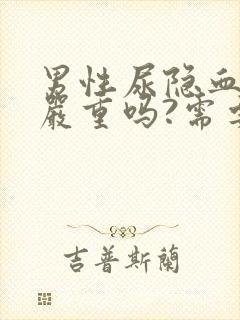 男性尿隐血
严重吗?需
吉普斯蘭